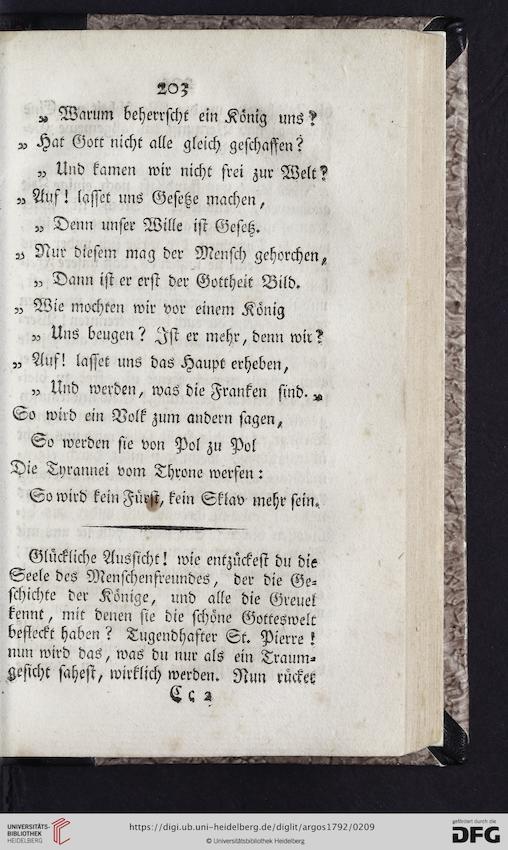 203
„ Warum beherrscht ein König uns?
„ Hat Gott nicht alle gleich geschaffen?
„ Und kamen wir nicht frei zur Welt?
„ Auf! lasset uns Gesetze machen,
„ Denn unser Wille ist Gesetz.
„ Nur diesem mag der Mensch gehorchen,
„ Dann ist er erst der Gottheit Bild.
„ Wie mochten wir vor einem König
„ Uns beugen? Ist er mehr, denn wir?
„ Auf! lasset uns das Haupt erheben,
„ Und werden, was die Franken sind. „
So wird ein Volk zum andern sagen,
So werden sie von Pol zu Pol
Die Tyrannei vom Throne werfen:
So wird kein Fürst, kein Sklav mehr sein.
Glückliche Aussicht! wie entzückest du die
Seele des Menschenfreundes, der die Ge-
schichte der Könige, und alle die Greuel
kennt, mit denen sie die schöne Gotteswelt
befleckt haben? Tugendhafter St. Pierre!
nun wird das, was du nur als ein Traum-
gesicht sahest, wirklich werden. Nun rücket
C c 2
UNIVERSITÄTS-
BIBLIOTHEK
HEIDELBERG
https://digi.ub.uni-heidelberg.de/diglit/argos1792/0209
© Universitätsbibliothek Heidelberg
gefördert durch die
DFG